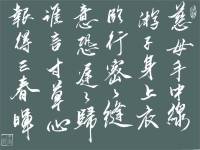 慈母手中線
游子身上衣
臨行密々縫
意恐遲々歸
誰言寸草心
報得三春暉